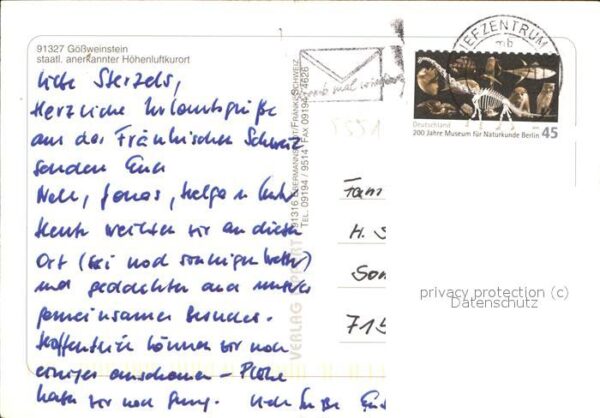 91327 Gößweinstein
staatl. anerkannter Höhenluftkurort
Liebe Steizels,
Herzliche Urlaubsgrüße
aus der Fränkischen Schweiz
senden Euch
Nele, Jonas, Helga u.
Heute weilten wir an diesem
Ort (bei noch sonnigem Wetter)
und gedachten an unseren
gemeinsamen Besuch.
Hoffentlich können wir noch
einiges anschauen – Pläne
haben wir noch genug. Liebe Grüße
VERLAG
91316 EBERMANNSTADT/FRÄNK. SCHWEIZ
TEL. 09194 / 9514 · FAX 09194 / 4626
mal wieder
BRIEFZENTRUM
mb
Deutschland
200 Jahre Museum für Naturkunde Berlin
45
Fam
H. S
Son
715
privacy protection (c)
Datenschutz